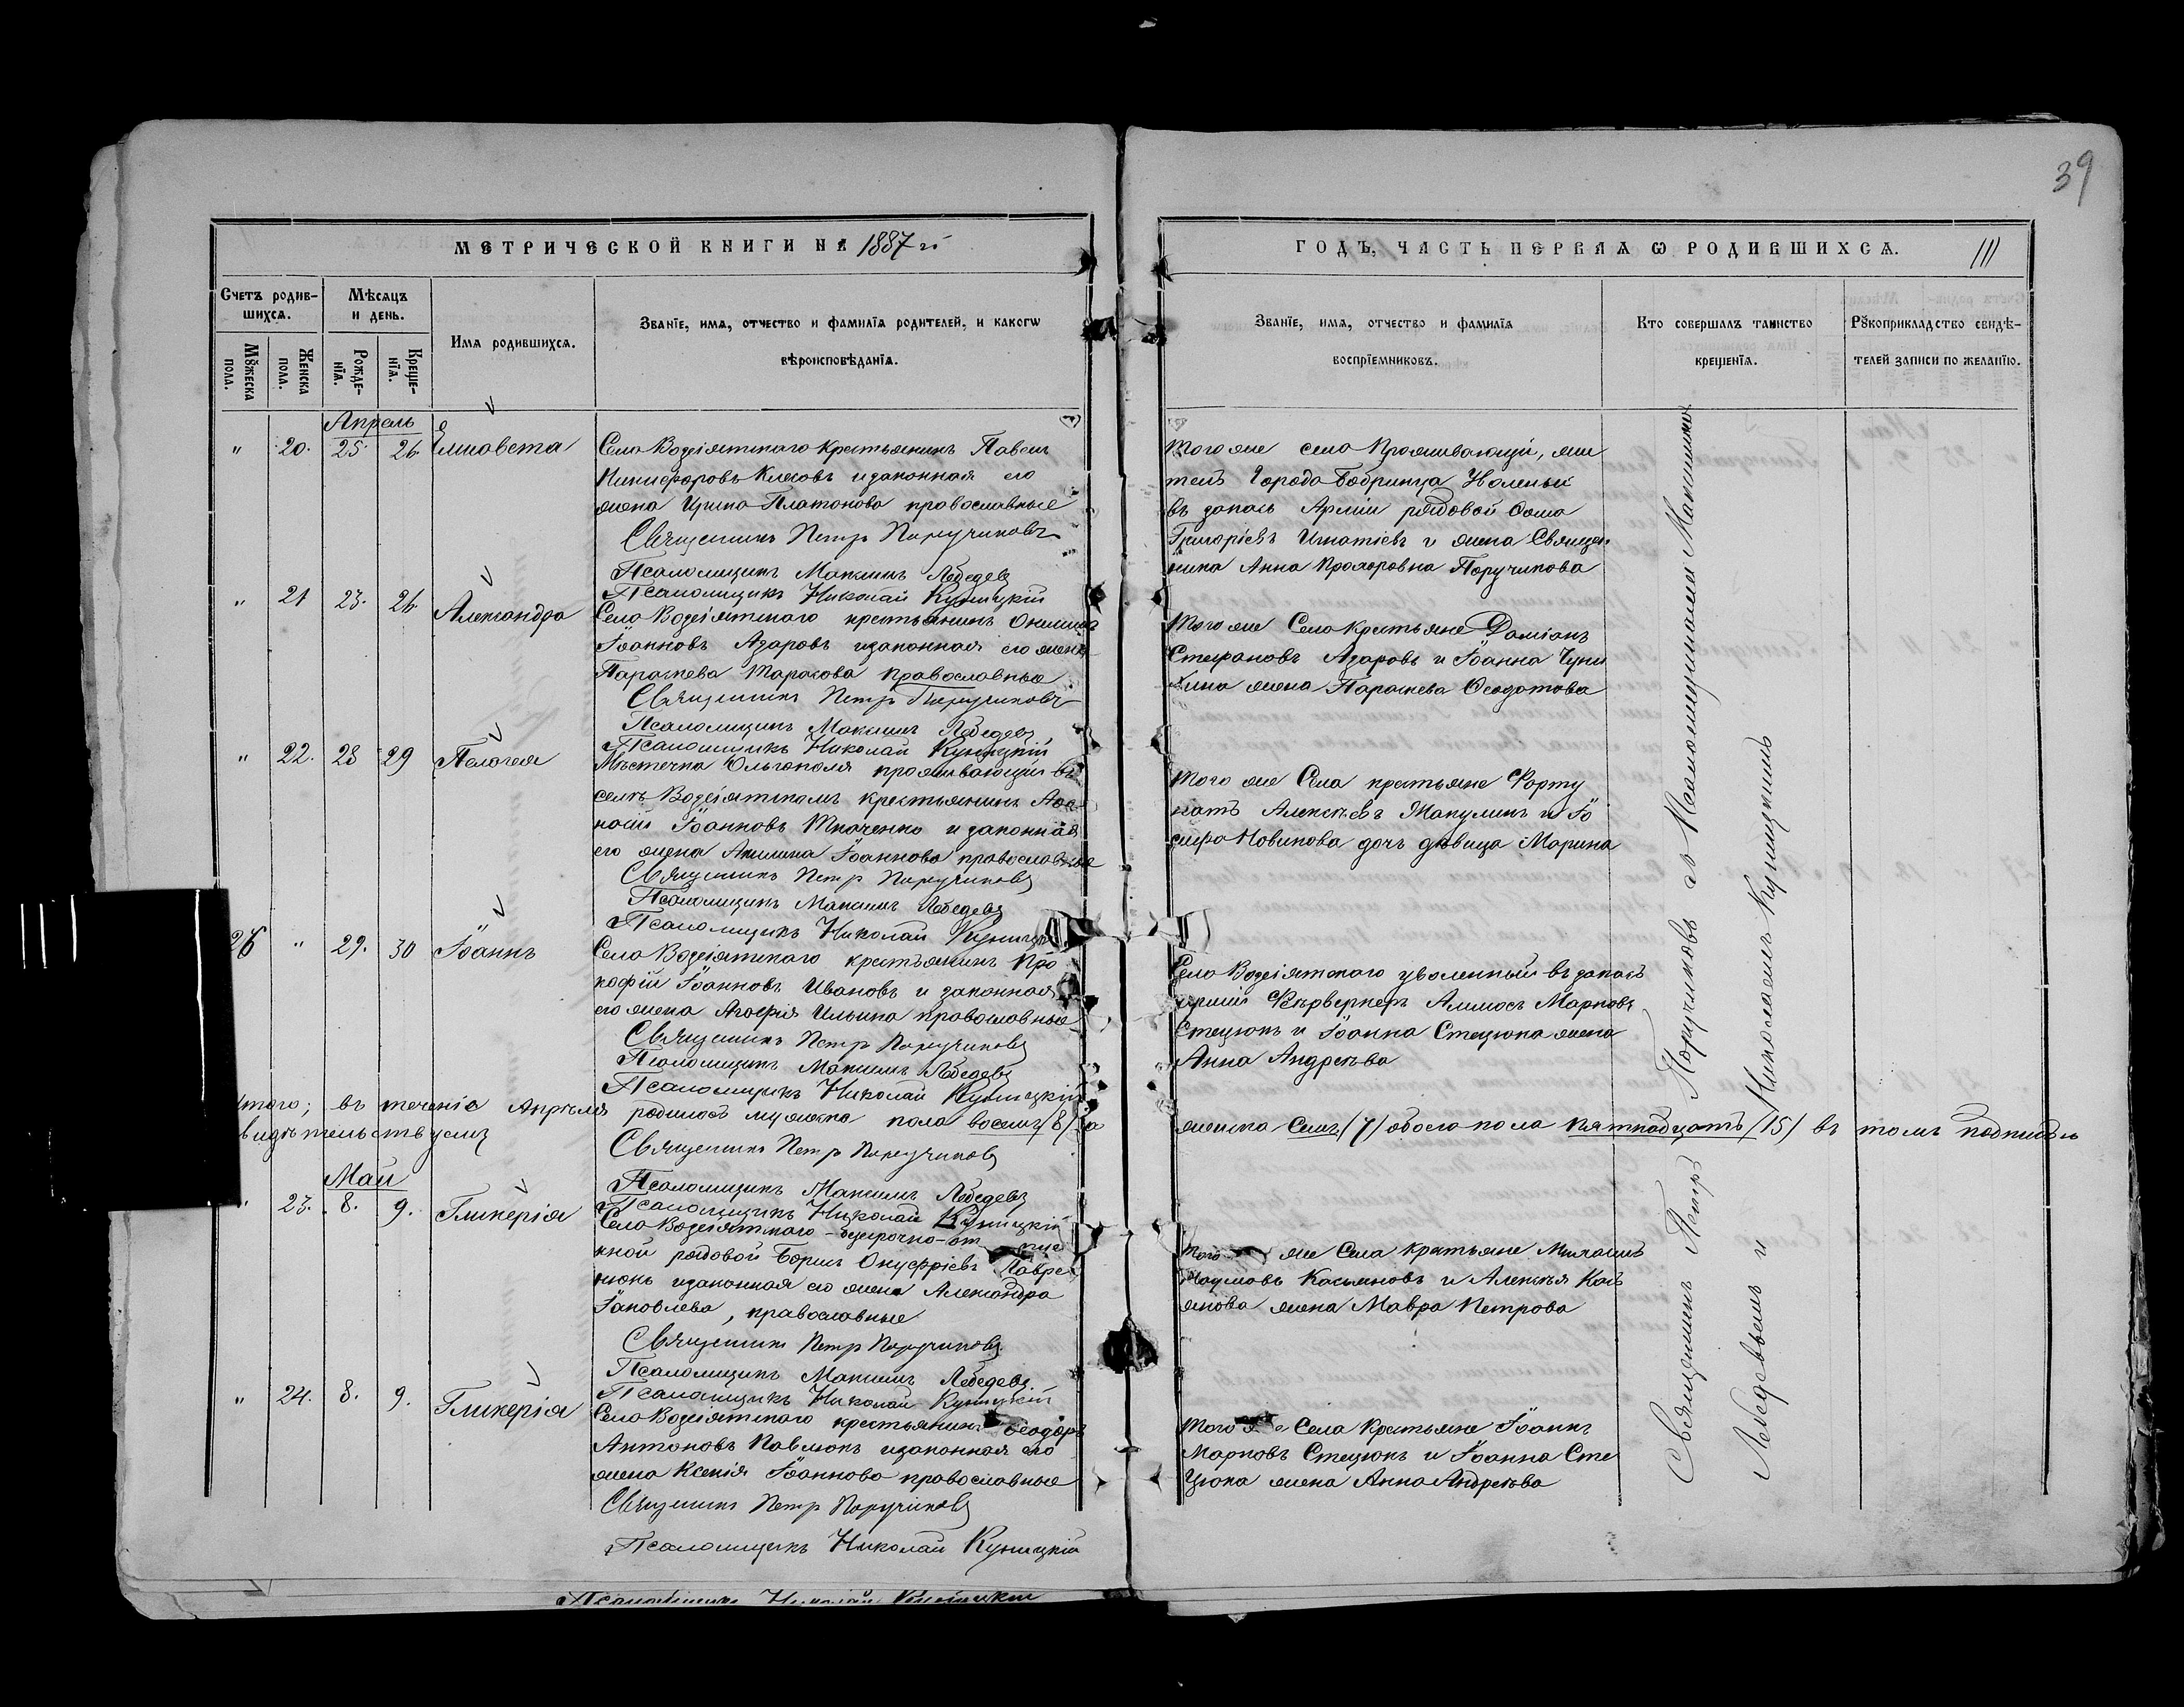 39
МЕТРИЧЕСКОЙ КНИГИ НА 1887 й
ГОДЪ, ЧАСТЬ ПЕРВАЯ Ѡ РОДИВШИХСЯ. 111
Счетъ родив-
шихся.
Мꙋжеска
пола.
Женска
пола.
Мѣсяцъ
и день.
Рожде-
нїя.
Креще-
нїя.
Имя родившихся.
Званїе, имя, отчество и фамилїя родителей, и какогѡ
вѣроисповѣданїя.
Званїе, имя, отчество и фамилїя
воспрїемниковъ.
Кто совершалъ таинство
крещенїя.
Рꙋкоприкладство свидѣ-
телей записи по желанїю.
Апрель
" 20. 25. 26. Елисавета
Села Водеіятскаго крестьянинъ Павелъ
Никифоровъ Клеовъ и законная его
жена Ирина Платонова православные
Священникъ Петръ Поручиковъ
Псаломщикъ Максимъ Лебедевъ
Псаломщикъ Николай Куницкій
Того же села проживающій, жи
тель Города Бобринца
въ запасъ Арміи рядовой Ѳома
Григоріевъ Игнатіевъ и жена Священ
ника Анна Прохоровна Поручикова
" 21 23. 26. Александра
Села Водеіятскаго крестьянинъ
Іоанновъ Азаровъ и законная его жена
Параскева Тарасова православные
Священникъ Петръ Поручиковъ
Псаломщикъ Максимъ Лебедевъ
Псаломщикъ Николай Куницкій
Того же Села крестьяне Даміанъ
Стефановъ Азаровъ и Іоанна
жена Параскева Ѳеодотова
" 22. 28 29 Пелагея
Мѣстечка Ольгополя проживающій въ
селѣ Водеіятскомъ крестьянинъ Аѳа
насій Іоанновъ Ткаченко и законная
его жена Акилина Іоаннова православные
Священникъ Петръ Поручиковъ
Псаломщикъ Максимъ Лебедевъ
Псаломщикъ Николай Куницкій
Того же Села крестьяне Форту
натъ Алексѣевъ Макулинъ и Іо
сифа Новикова дочь дѣвица Марина
" 29. 30 Іоаннъ
Села Водеіятскаго крестьянинъ Про
кофій Іоанновъ Ивановъ и законная
его жена Агафія Ильина православные
Священникъ Петръ Поручиковъ
Псаломщикъ Максимъ Лебедевъ
Псаломщикъ Николай Куницкій
Села Водеіятскаго уволенный въ запасъ
арміи Фейерверкеръ Марковъ
Стецюкъ и Іоанна Стецюка жена
Анна Андреева
Итого; въ теченіе Апрѣля родилось мужеска пола восемь /8/ да
женска Семь /7/ обоего пола пятнадцать /15/ въ томъ подписью
свидѣтельствуемъ
Священникъ Петръ Поручиковъ
Псаломщикъ Максимъ Лебедевъ
Псаломщикъ Николай Куницкій
Май
" 23. 8. 9. Гликерія
Села Водеіятскаго безсрочно-отпуск
кной рядовой Борисъ Онуфріевъ Лавре
нюкъ и законная его жена Александра
Іаковлева, православные
Священникъ Петръ Поручиковъ
Псаломщикъ Максимъ Лебедевъ
Псаломщикъ Николай Куницкій
Того же Села крестьяне
Наумовъ Касьяновъ и Алексѣя Кась
янова жена Мавра Петрова
" 24. 8. 9. Гликерія
Села Водеіятскаго крестьянинъ Ѳеодоръ
Антоновъ Павлюкъ и законная его
жена Ксенія Іоаннова православные
Священникъ Петръ Поручиковъ
Псаломщикъ Николай Куницкій
Того же Села Крестьяне Іоаннъ
Марковъ Стецюкъ и Іоанна Сте
цюка жена Анна Андреева
Священникъ Петръ Поручиковъ съ Псаломщиками Максимомъ
Лебедевымъ и Николаемъ Куницкимъ
Псаломщикъ Николай Куницкій